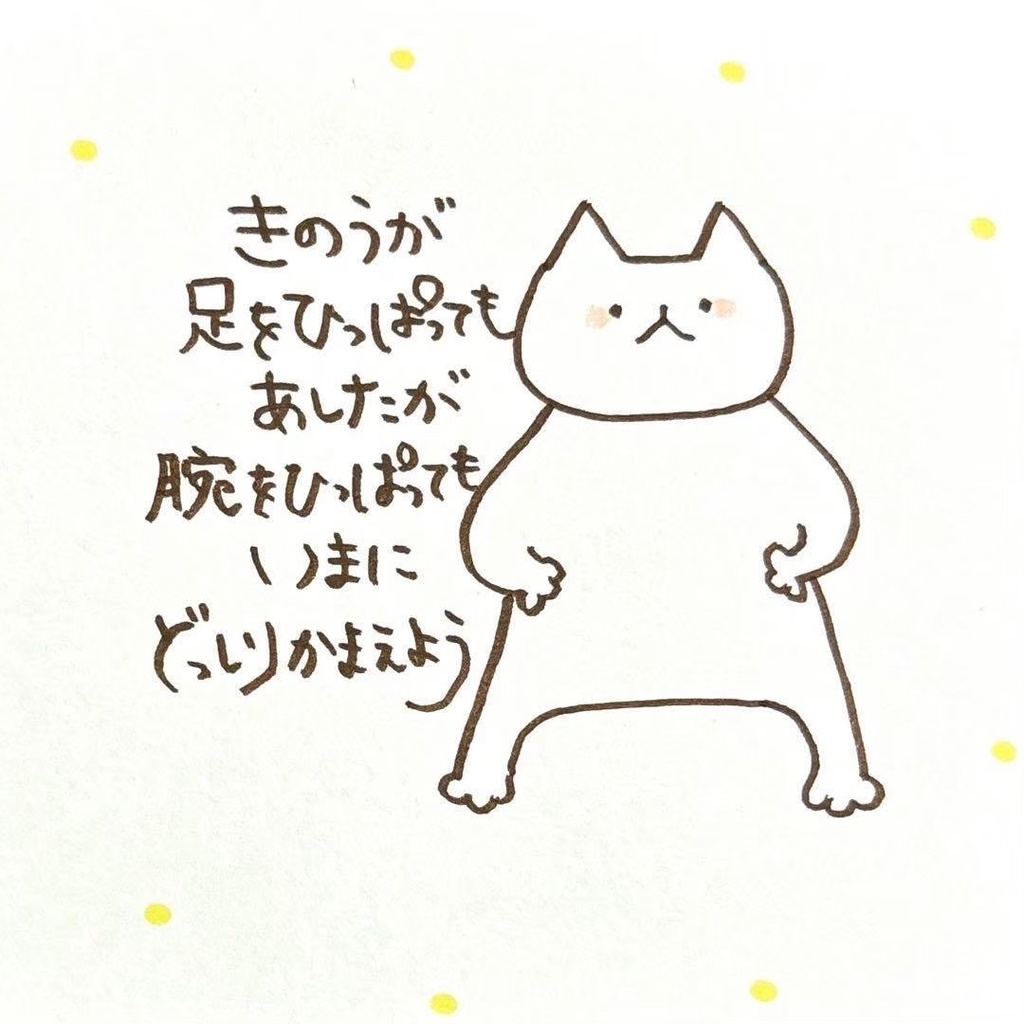 きのうが
足をひっぱっても
あしたが
腕をひっぱっても
いまに
どっしりかまえよう